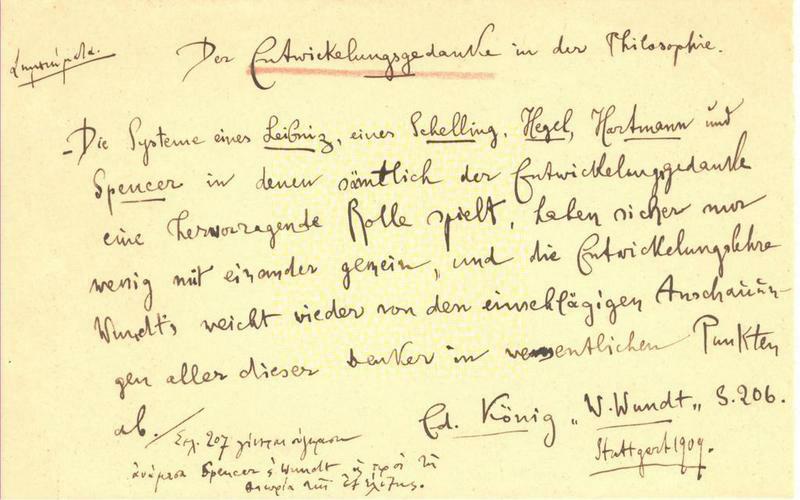 Σημείωμα.
Der Entwickelungsgedanke in der Philosophie.
- Die Systeme eines Leibniz, eines Schelling, Hegel, Hartmann und
Spencer in denen sämtlich der Entwickelungsgedanke
eine hervorragende Rolle spielt, haben sicher nur
wenig mit einander gemein, und die Entwickelungslehre
Wundt's weicht wieder von den einschlägigen Anschauun-
gen aller dieser Denker in wesentlichen Punkten
ab.
Ed. König „W. Wundt„ S. 206.
Stuttgart 1909.
Σελ. 207 γίνεται σύγκρισις
ἀνάμεσα Spencer & Wundt ὡς πρὸς τὴ
θεωρία τῆς ἐξελίξης.